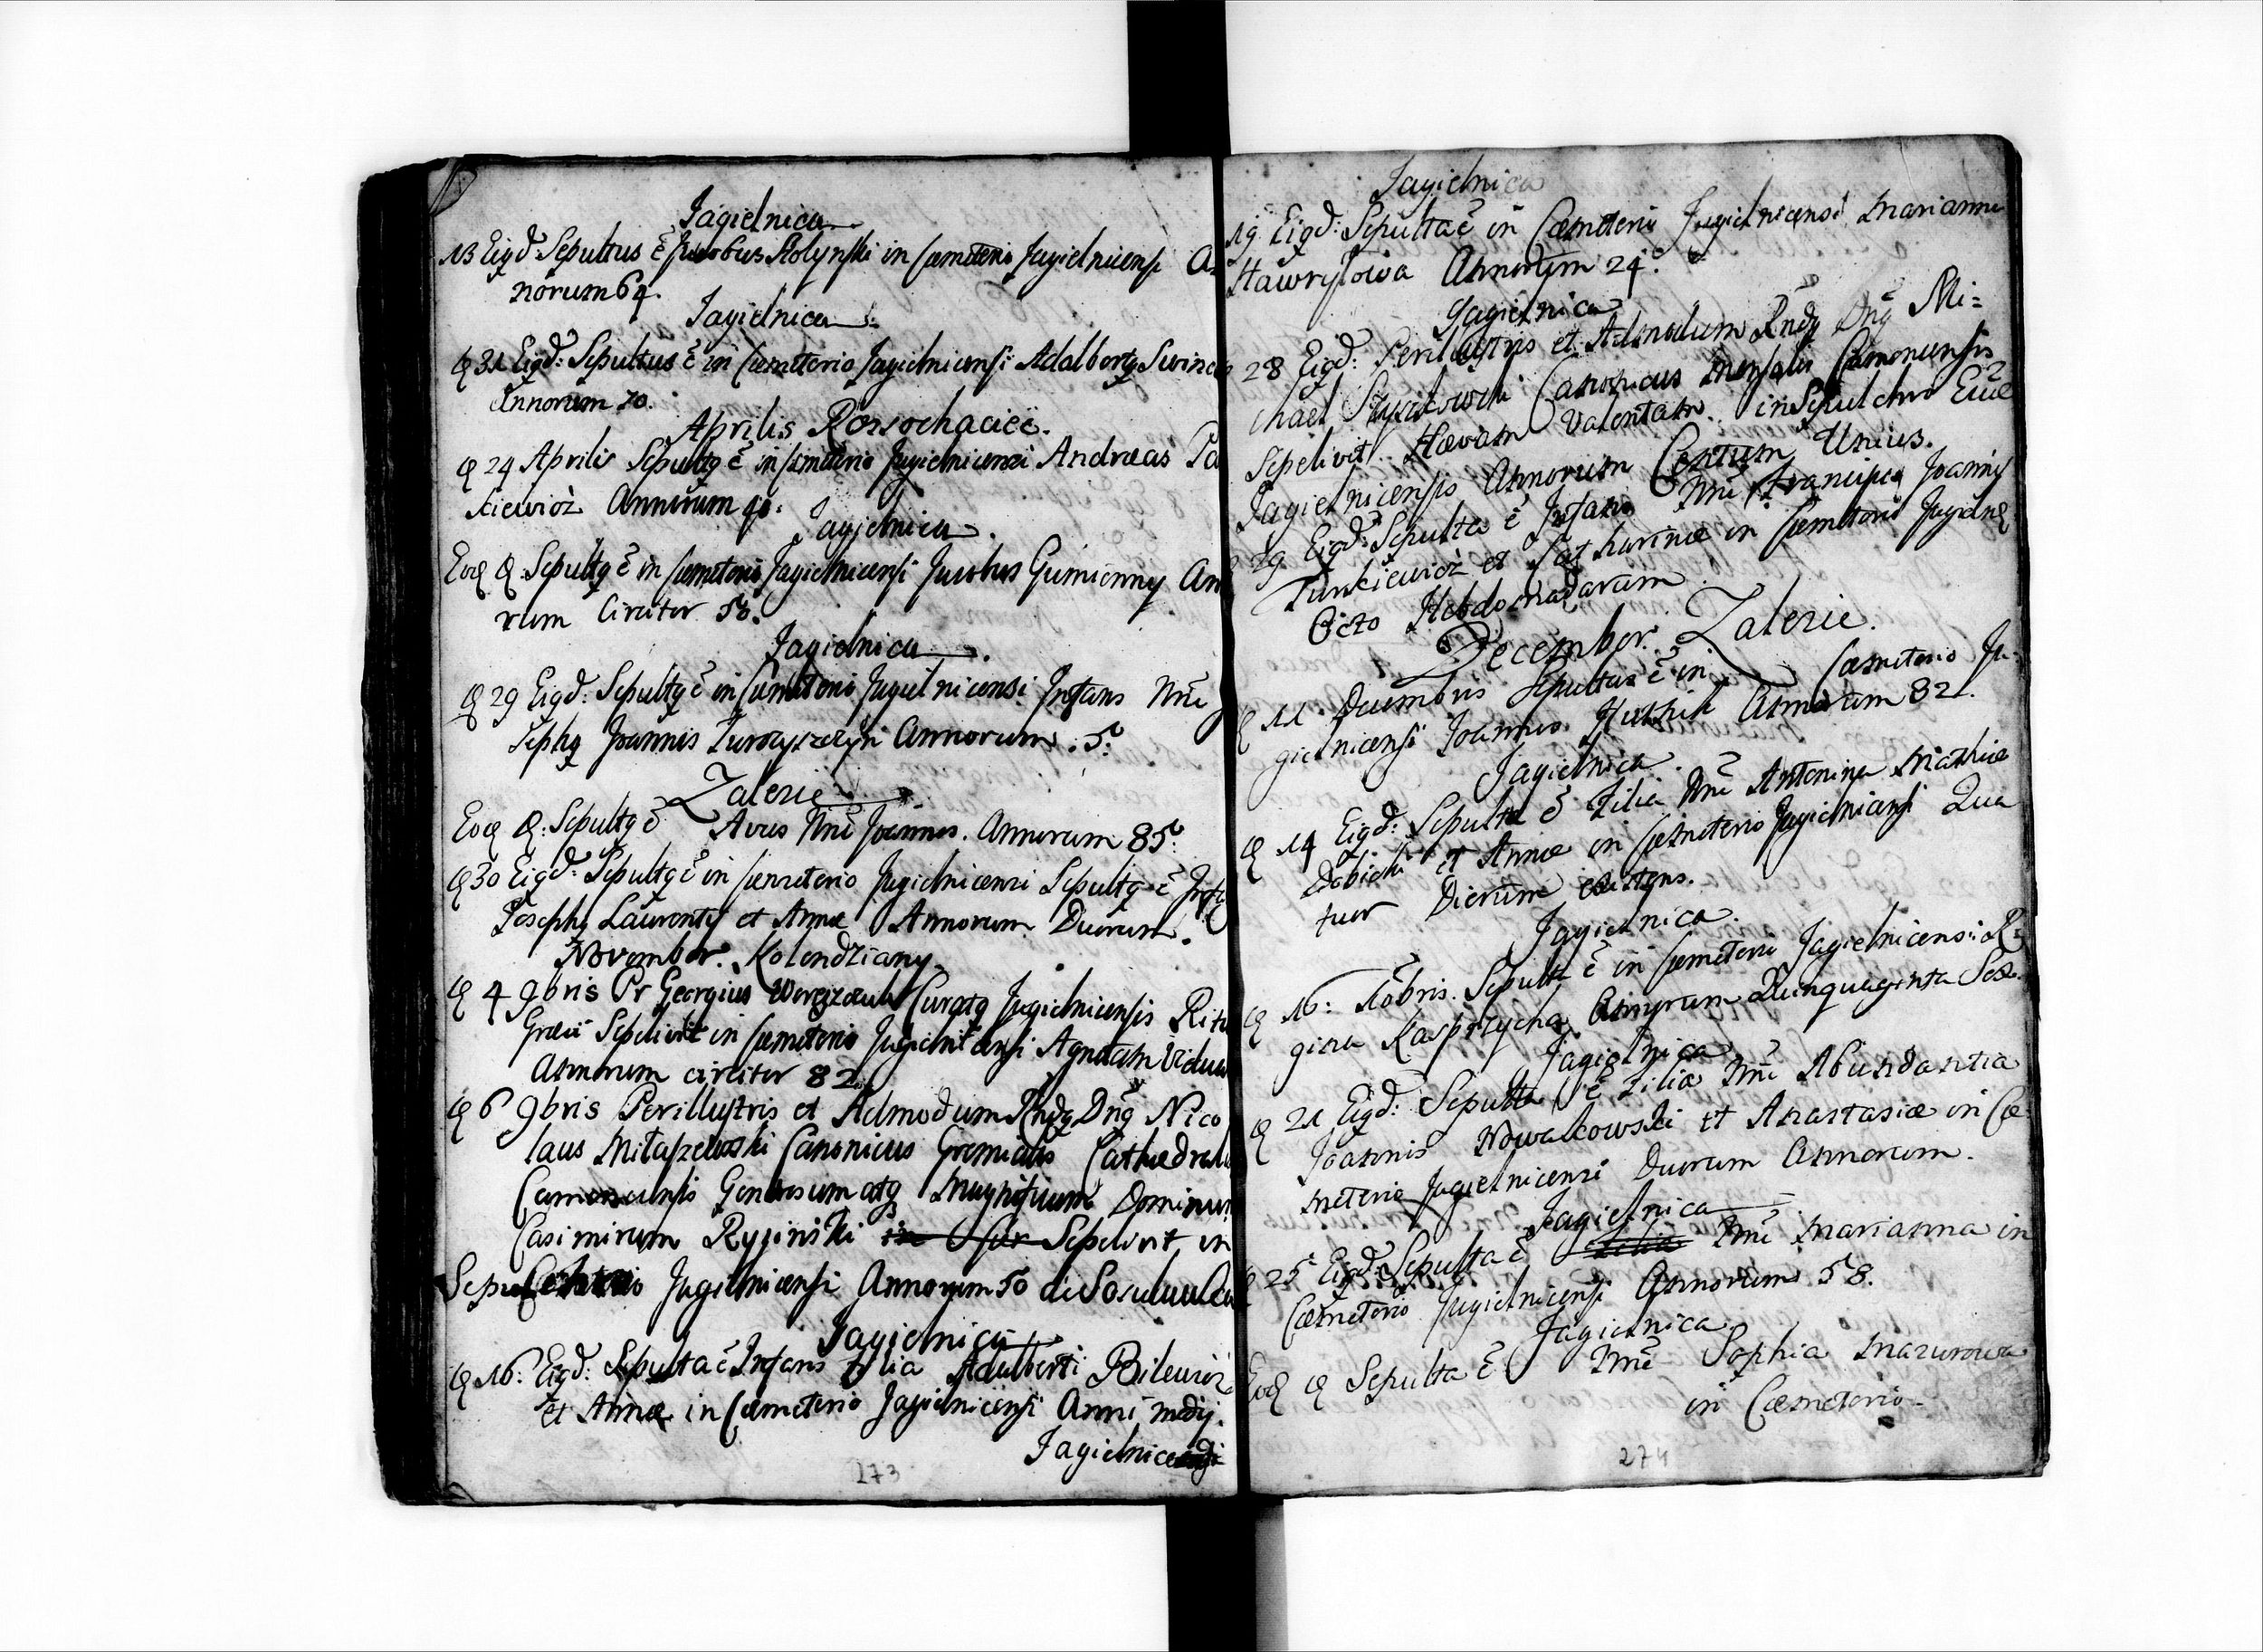 Jagielnica
13 Eigd Sepultus ē Jacobus Stolynski in Cæmeterio Jagielnicensi An
norum 64.
Jagielnica
D 31 Eigd: Sepultus ē in Cæmeterio Jagielnicensi Adalbertq
Annorum 70.
Aprilis Rossochaciec.
D 24 Aprilis Sepultq ē in Cimeterio Jagielnicensi Andræas Pa
kiewicz Annorum 40.
Jagielnica.
Eod D. Sepultq ē in Cæmeterio Jagielnicensi Jacobus Gumienny An
rum Circiter 50.
Jagielnica.
D 29 Eigd: Sepultq ē in Cæmeterio Jagielnicensi Infans Nnē
sephq Joannis Annorum. 5.
Zalesie
Eod D: Sepultq ē Avus Nnē Joannes. Annorum 85.
D 30 Eigd: Sepultq ē in Cæmeterio Jagielnicensi Sepultq ē Infa
Josephq Laurentij et Annæ Annorum Duorum.
November. Kolendziany
D 4 9bris Pr Georgius Curatq Jagielnicensis Ritu
Græci Sepelivit in Cæmeterio Jagielnicensi Agnetam Vidua
Annorum circiter 82
D 6 9bris Perillustris et Admodum Rndq Dnq Nico
laus Canonicus Gremialis Cathedral
Camenecensis Generosum atq Magnificum Dominum
Casimirum Ryginski Sepelivit in
Sepulchro Jagielnicensi Annorum 50
Jagielnica
D 16. Eigd: Sepulta ē Infans Filia Adalberti Bilewicz
et Annæ in Cæmeterio Jagielnicensi Anni medij.
Jagielnice
273
Jagielnica
19. Eigd: Sepulta ē in Cæmeterio Jagielnicensi Marianna
Hawrylowa Annorum 24.
Jagielnica
D 28 Eigd: Perillustris et Admodum Rndq Dnq Mi=
chael Canonicus Camenecensis
Sepelivit in Sepulchro Eccl
Jagielnicensis Annorum Centum Unius.
29 Eigd: Sepulta ē Infans Nnē Francisca Joannis
et Catharinæ in Cæmeterio Jagieln
Octo Hebdomadarum
December. Zalesie.
D 11. Decembris Sepultus ē in Cæmeterio Ja-
gielnicensi Joannes Annorum 82.
Jagielnica.
D 14 Eigd: Sepulta ē Filia Nnē Antonina Mathiæ
Dobicki et Annæ in Cæmeterio Jagielnicensi Qua
tuor Dierum existens.
Jagielnica.
D 16: Xbris. Sepulta ē in Cæmeterio Jagielnicensi Re
gina Kasprzycha Annorum Quinquaginta Sex.
Jagielnica
D 21 Eigd: Sepulta ē Filia Nnē Abundantia
Joannis Nowakowski et Anastasiæ in Cæ
meterio Jagielnicensi Duorum Annorum.
Jagielnica
D 25 Eigd: Sepulta ē Filia Nnē Marianna in
Cæmeterio Jagielnicensi Annorum 58.
Jagielnica.
Eod D Sepulta ē Nnē Sophia Mazurowa
in Cæmeterio
274